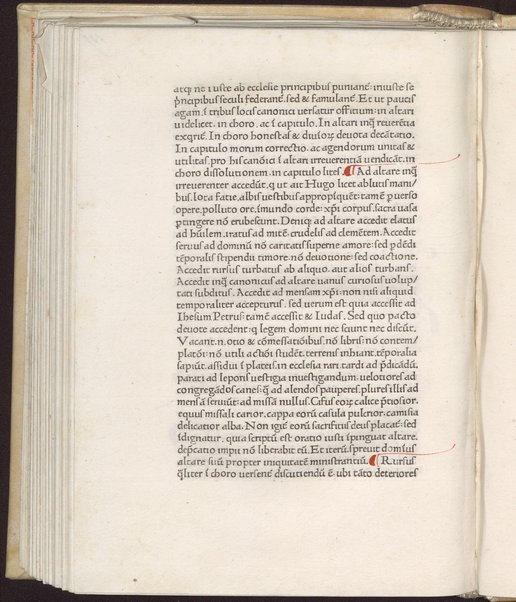 atq; ne iuste ab ecclesie principibus punianť: iniuste se
p̄ncipibus seculi federant̄. sed & famulant̄. Et ut paucis
agam. ī tribus locis canonici uersatur offitium: in altari
uidelicet. in choro. ac ī capitulo. In altari inq̄ reuerētia
exqrit̄. In choro honestas & diuīoꝝ deuota decātatio.
In capitulo morum correctio. ac agendorum unitas &
utilitas. pro his canōici ī altari irreuerentiā uendicāt. in
choro dissolutionem. in capitulo lites. ¶ Ad altare inq̄
irreuerenter accedūt. q ut ait Hugo licet ablutis mani/
bus. lota fatie. albis uestibus appropīquēt: tamē puerso
opere. polluto ore. īmundo corde: xp̄i corpus. sacra uasa
ptingere nō erubescunt. Deniq; ad altare accedit elatus
ad hūilem. iratus ad mitē. crudelis ad clemētem. Accedit
seruus ad dominū nō caritatis superne amore: sed pdēdi
tēporalis stipendii timore. nō deuotione: sed coactione.
Accedit rursus turbatus ab aliquo. aut alios turbans.
Accedit inq̄ canonicus ad altare uanus curiosus uolup/
tati subditus. Accedit ad mensam xp̄i: non nisi aliquid
temporaliter accepturus. sed uerum est quia accessit ad
Ihesum Petrus: tamē accessit & Iudas. Sed quo pacto
deuote accedent: q legem domini nec sciunt nec discūt.
Vacant. n. otio & cōmessatiōibus. nō libris: nō contem/
platōi: nō utili actiōi studēt. terrenis inhiant. tēporalia
sapiūt. assidui ī plateis. in ecclesia rari. tardi ad p̄dicādū.
parati ad leporis uestigia inuestigandum. uelotiores ad
congregādos canes: q̄ ad alendos pauperes. plures illis ad
mensā seruiūt: ad missā nullus. Cifus eoꝝ calice p̄tiosior.
equus missali carior. cappa eorū casula pulcrior: camisia
delicatior alba. Non igit̄ eorū sacrifitiis deus placat̄: sed
īdignatur. quia scriptū est oratio iusti īpinguat altare.
dep̄catio impii nō liberabit eū. Et iterū. spreuit domīus
altare suū propter iniquitatē ministrantiū. ¶ Rursus
q̄liter ī choro uersent̄ discutiendū ē: ubi tāto deteriores